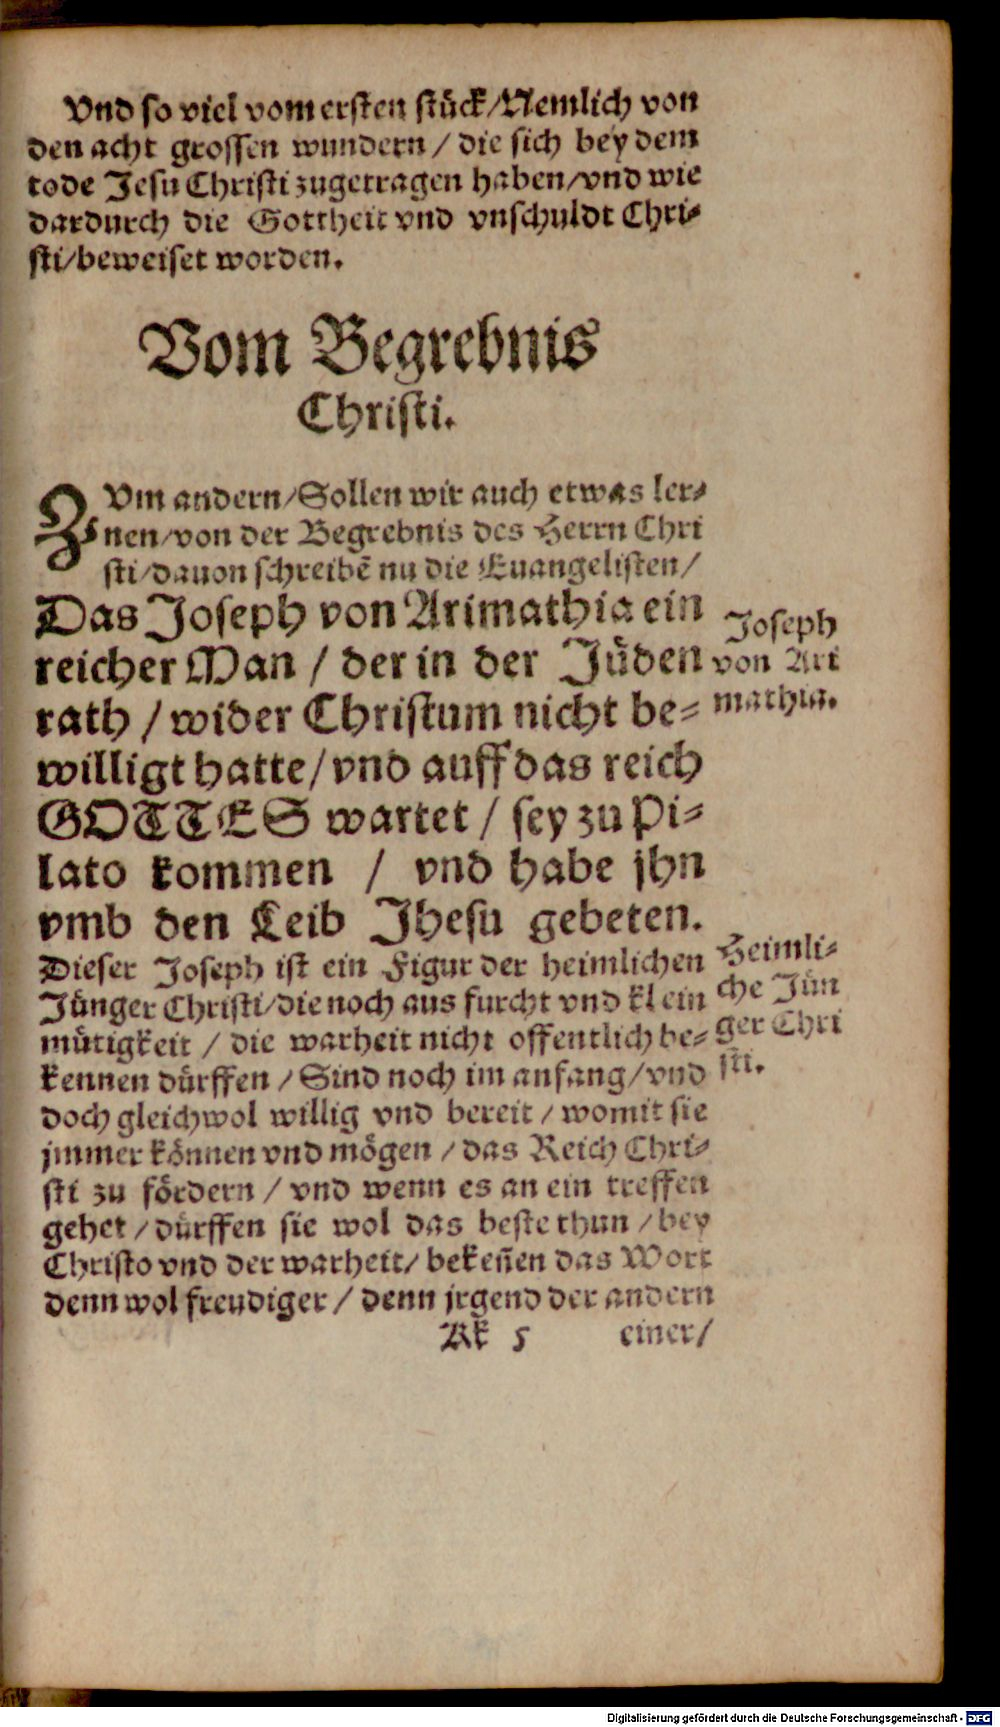 Vnd so viel vom ersten stück/Nemlich von
den acht grossen wundern / die sich bey dem
tode Jesu Christi zugetragen haben/vnd wie
dardurch die Gottheit vnd vnschuldt Chri-
sti/beweiset worden.
Vom Begrebnis
Christi.
ZVm andern/Sollen wir auch etwas ler-
nen/von der Begrebnis des Herrn Chri
sti/dauon schreibē nu die Euangelisten/
Das Joseph von Arimathia ein
reicher Man / der in der Jüden
rath / wider Christum nicht be-
willigt hatte/vnd auff das reich
GOTTES wartet / sey zu Pi-
lato kommen / vnd habe jhn
vmb den Leib Jhesu gebeten.
Joseph
von Ari
mathia.
Dieser Joseph ist ein Figur der heimlichen
Jünger Christi/die noch aus furcht vnd klein
mütigkeit / die warheit nicht offentlich be-
kennen dürffen / Sind noch im anfang/vnd
doch gleichwol willig vnd bereit / womit sie
jmmer können vnd mögen / das Reich Chri-
sti zu fördern / vnd wenn es an ein treffen
gehet / dürffen sie wol das beste thun / bey
Christo vnd der warheit/ bekeñen das Wort
denn wol freudiger / denn jrgend der andern
Heimli-
che Jün
ger Chri
sti.
Kk 5 einer/
Digitalisierung gefördert durch die Deutsche Forschungsgemeinschaft - DFG